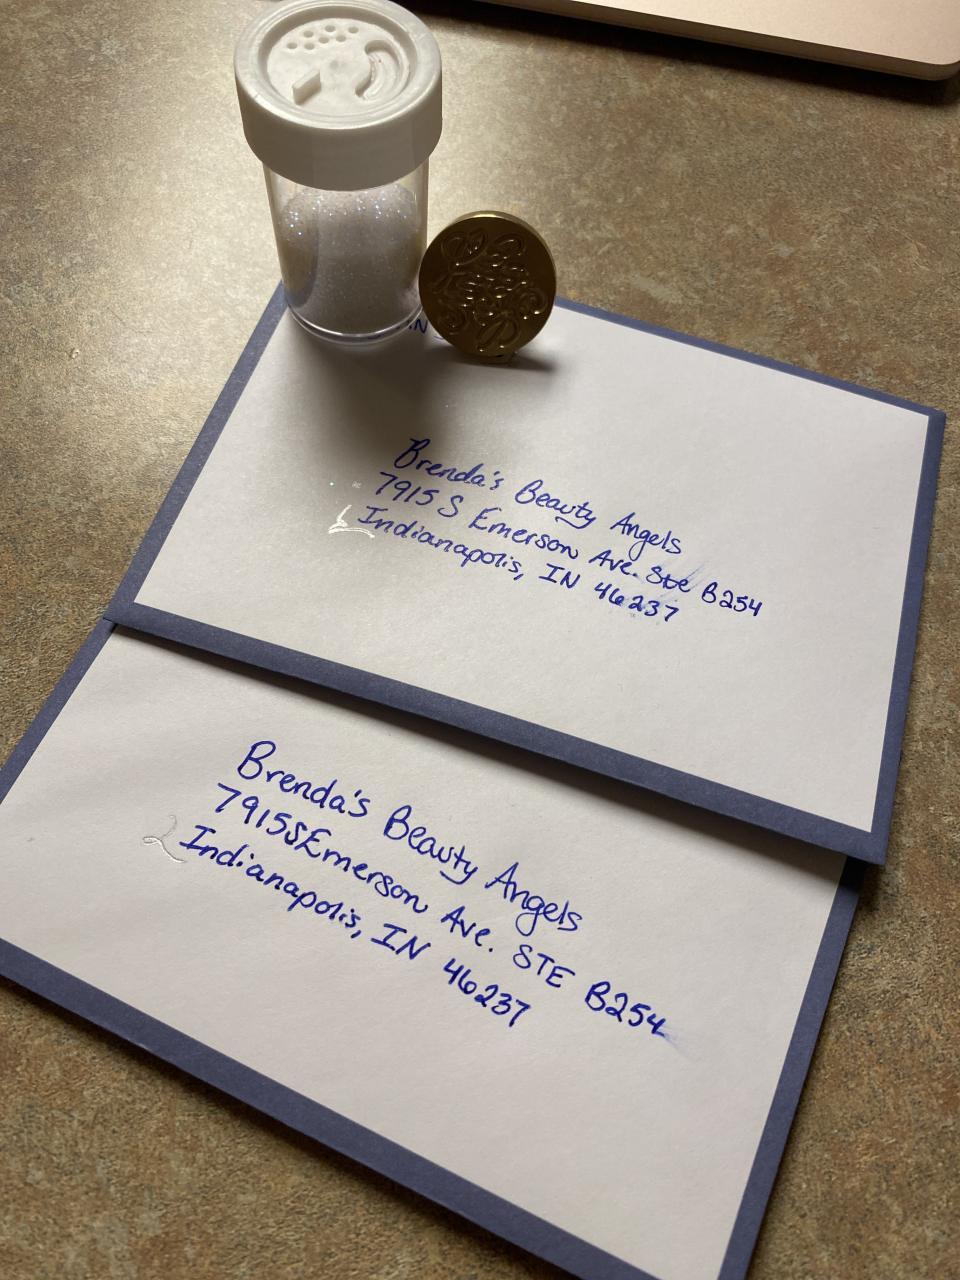 IN
Brenda's Beauty Angels
7915 S Emerson Ave. Ste B254
Indianapolis, IN 46237
Brenda's Beauty Angels
7915 S Emerson Ave. STE B254
Indianapolis, IN 46237